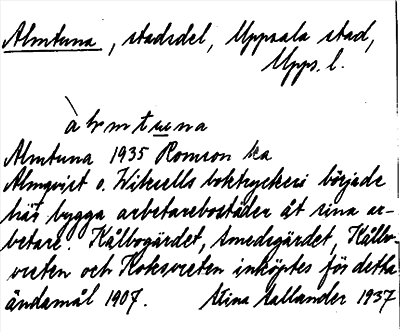 Almtuna, stadsdel, Uppsala stad,
Upps. l.
àlmtuna
Almtuna 1935 Ronson ka
Almqvist o. Wiksells boktryckeri började
här bygga arbetarebostäder åt sina ar-
betare. Kålbogärdet, Smedsgärdet, Kålbo-
vreten och Koksvreten inköptes för detta
ändamål 1907. Stina Hallander 1937